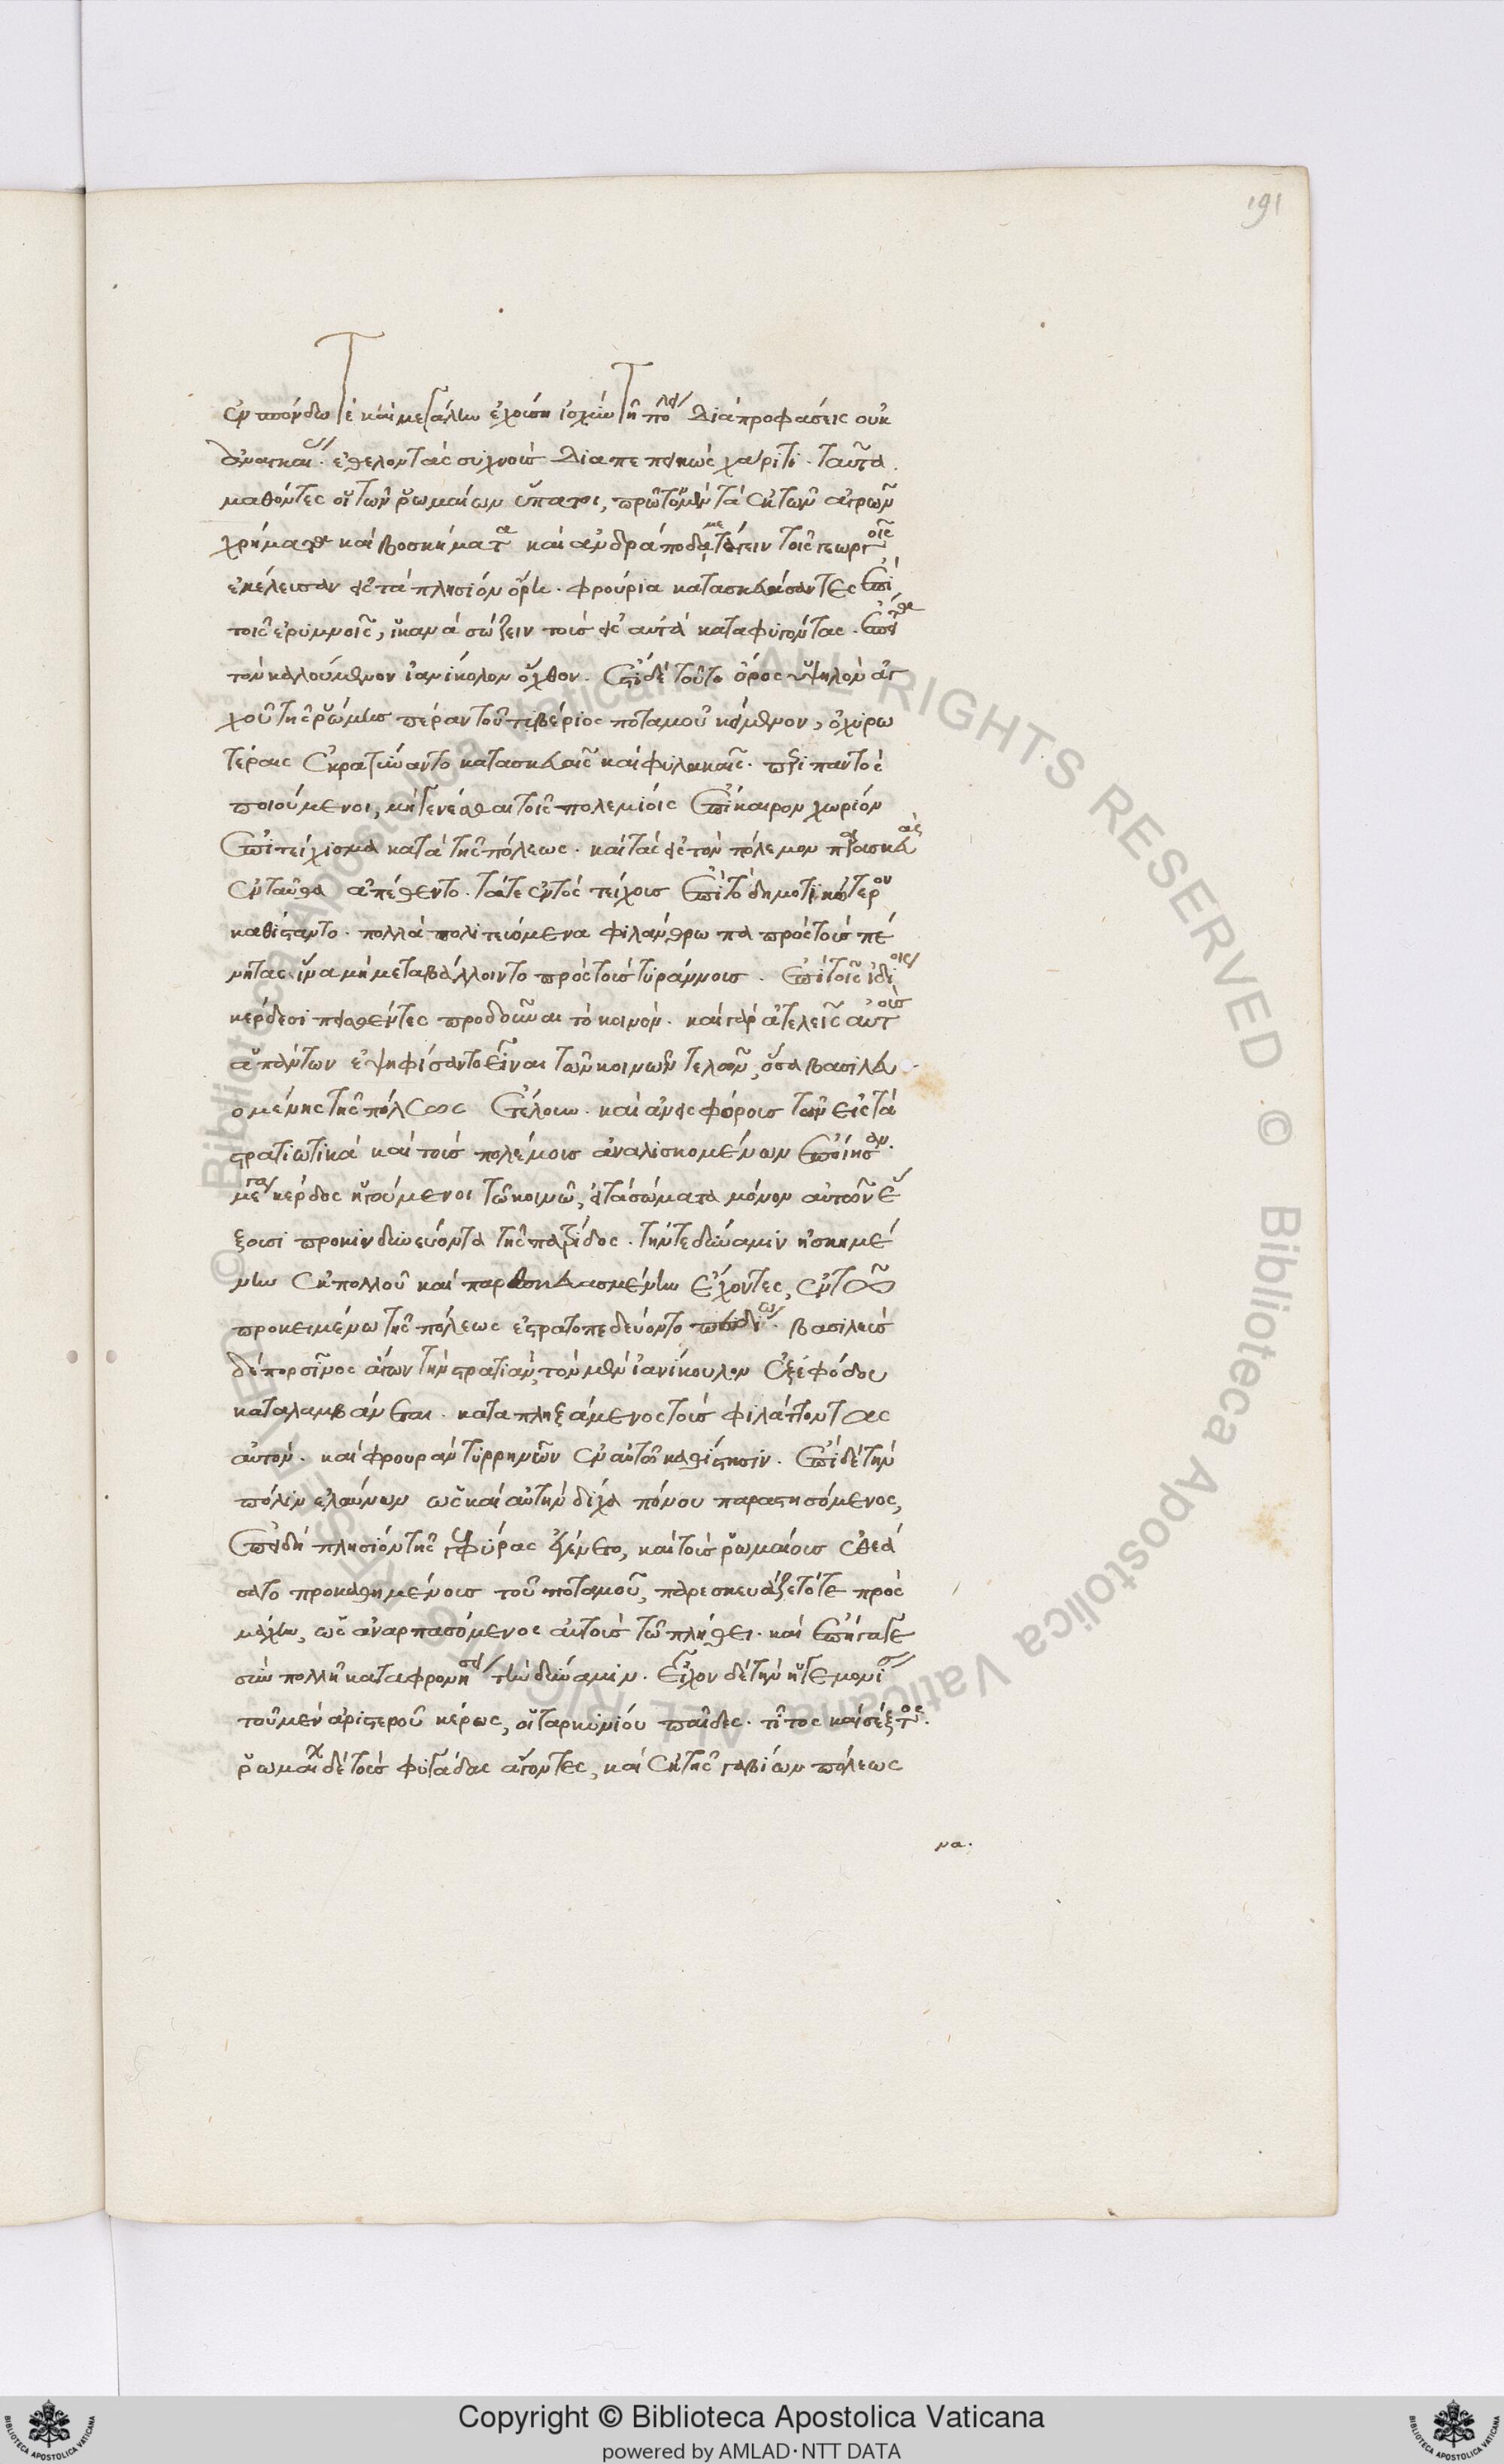 191
σπονδὼ τὲ καὶ μεγάλην ἔχουσῃ ἰσχὺν τῇ πόλει διὰ προφάσεις οὐκ
ἀναγκαίους. ἐθελοντὰς συχνοὺς διαπεπεικὼς χάριτι. ταῦτα
μαθόντες οἱ τῶν ῥωμαίων ὕπατοι, πρῶτον μὲν τὰ ἐκ τῶν ἀγρῶν
χρήματα καὶ βοσκήματα καὶ ἀνδράποδα μετάγειν τοῖς γεωργοῖς
ἐκέλευσαν εἰς τὰ πλησίον ὄρη. φρούρια κατασκευάσαντες ἐπὶ
τοῖς ἐρυμνοῖς, ἱκανὰ σώζειν τοὺς εἰς αὐτὰ καταφυγόντας. ἔπειτα
τὸν καλούμενον ἰανίκολον ὄχθον. ἐστὶ δὲ τοῦτο ὄρος ὑψηλὸν ἀγ
χοῦ τῆς ῥώμης πέραν τοῦ τιβέριος ποταμοῦ κείμενον, ὀχυρω
τέραις ἐκρατύναντο κατασκευαῖς καὶ φυλακαῖς. περὶ παντὸς
ποιούμενοι, μὴ γενέσθαι τοῖς πολεμίοις ἐπίκαιρον χωρίον
ἐπιτείχισμα κατὰ τῆς πόλεως. καὶ τὰς εἰς τὸν πόλεμον παρασκευὰς
ἐνταῦθα ἀπέθεντο. τά τε ἐντὸς τείχους ἐπὶ τὸ δημοτικώτερον
καθίσταντο. πολλὰ πολιτευόμενα φιλάνθρωπα πρὸς τοὺς πέ
νητας. ἵνα μὴ μεταβάλλοιντο πρὸς τοὺς τυράννους. ἐπὶ τοῖς ἰδίοις
κέρδεσι πεισθέντες προδοῦναι τὸ κοινόν. καὶ γὰρ ἀτελεῖς αὐτοὺς
ἁπάντων ἐψηφίσαντο εἶναι τῶν κοινῶν τελῶν, ὅσα βασιλευ
ομένης τῆς πόλεως ἐτέλουν. καὶ ἀνεισφόρους τῶν εἰς τὰ
στρατιωτικὰ καὶ τοὺς πολέμους ἀναλισκομένων ἐποίησαν.
μέγα κέρδος ἡγούμενοι τῷ κοινῷ, εἰ τὰ σώματα μόνον αὐτῶν ἕ
ξουσι προκινδυνεύοντα τῆς πατρίδος. τήν τε δύναμιν ἠσκημέ
νην ἐκ πολλοῦ καὶ παρεσκευασμένην ἔχοντες, ἐν τῷ
προκειμένῳ τῆς πόλεως ἐστρατοπεδεύοντο πεδίῳ. βασιλεὺς
δὲ πορσῖνος ἄγων τὴν στρατιὰν, τὸν μὲν ἰανίκουλον ἐξ ἐφόδου
καταλαμβάνεται. καταπληξάμενος τοὺς φυλάττοντας
αὐτόν. καὶ φρουρὰν τυρρηνῶν ἐν αὐτῷ καθίστησιν. ἐπὶ δὲ τὴν
πόλιν ἐλαύνων ὡς καὶ αὐτὴν δίχα πόνου παραστησόμενος,
ἐπειδὴ πλησίον τῆς γεφύρας ἐγένετο, καὶ τοὺς ῥωμαίους ἐθεά
σατο προκαθημένους τοῦ ποταμοῦ, παρεσκευάζετό τε πρὸς
μάχην, ὡς ἀναρπασόμενος αὐτοὺς τῷ πλήθει. καὶ ἐπῆγαγε
σὺν πολλῇ καταφρονήσει τὴν δύναμιν. εἶχον δὲ τὴν ἡγεμονίαν
τοῦ μὲν ἀριστεροῦ κέρως, οἱ ταρκυνίου παῖδες. τῖτος καὶ σέξτος.
ῥωμαίων δὲ τοὺς φυγάδας ἄγοντες, καὶ ἐκ τῆς γαβίων πόλεως
να.
Copyright © Biblioteca Apostolica Vaticana
powered by AMLAD·NTT DATA